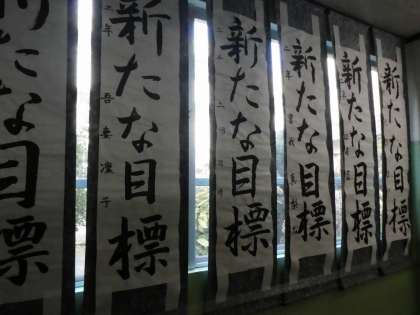 新たな目標
新たな目標
二年 吾妻凛子
新たな目標
新たな目標
二年
新たな目標
新たな目標